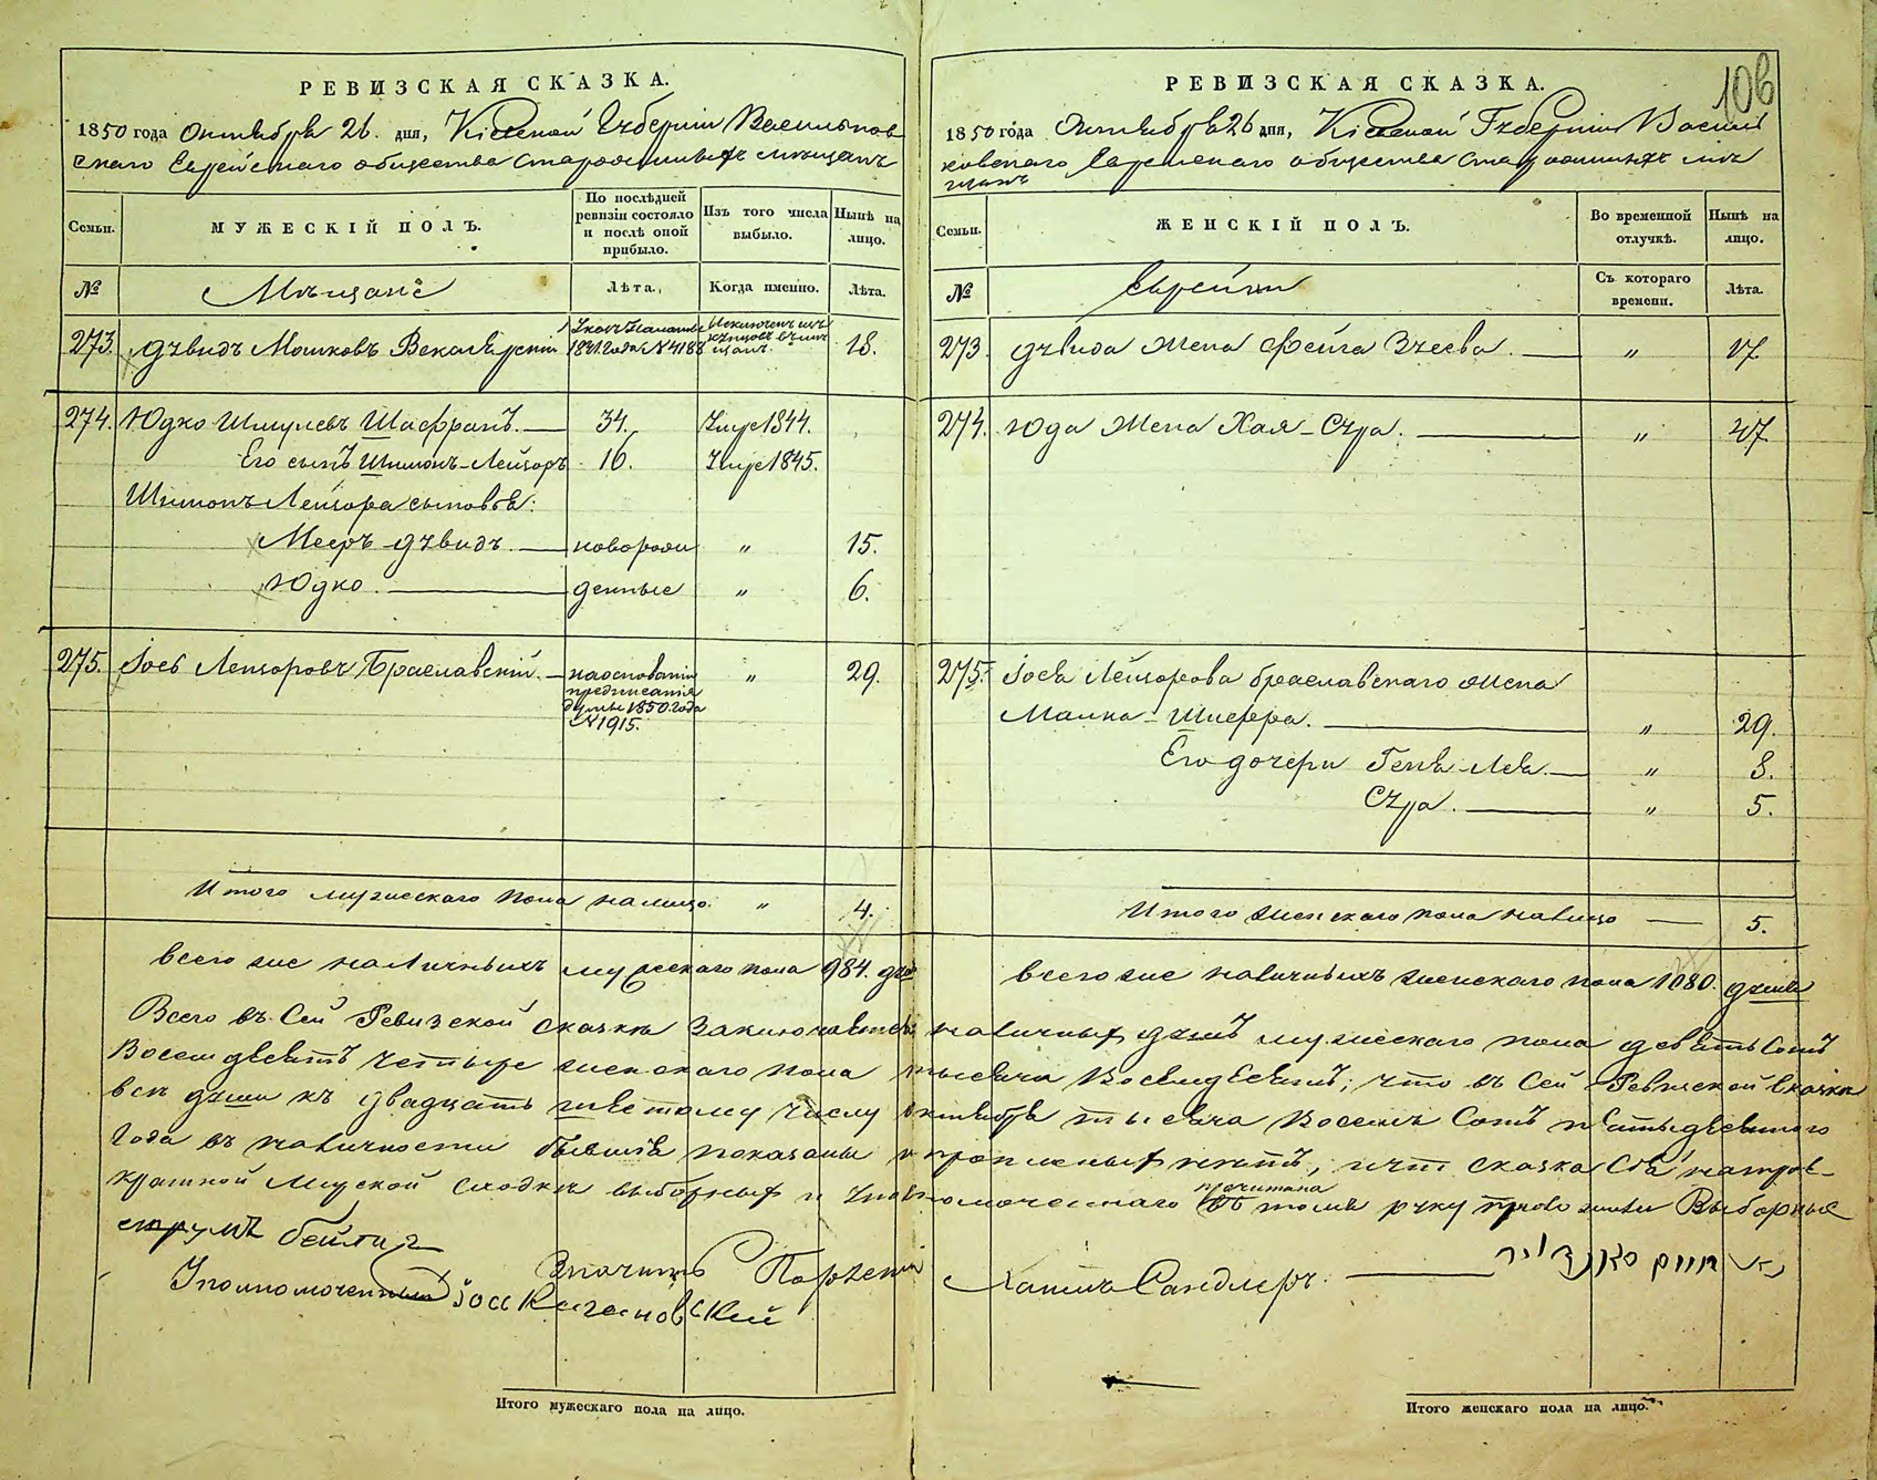 РЕВИЗСКАЯ СКАЗКА.
1850 года Октября 26. дня, Кіевской Губерніи Васильков
скаго Еврейскаго общества старожилыхъ мѣщанъ
Семьи.
МУЖЕСКІЙ ПОЛЪ.
По послѣдней ревизіи состояло и послѣ оной прибыло.
Изъ того числа выбыло.
Нынѣ на лицо.
№
Мѣщане
Лѣта.
Когда именно.
Лѣта.
273. Дувидъ Мошковъ 1841 года №4188 18.
274. Юдко Шмулевъ Шафранъ. 34. Умре 1844.
Его сынъ Шимонъ-Лейзоръ 16. Умре 1845.
Шимонъ Лейзора сыновья:
Мееръ-Дувидъ. новорож „ 15.
Юдко. денные „ 6.
275. Іось Лейзоровъ Браславскій. на основаніи „ 29.
предписанія
думы 1850 года
№1915.
Итого мужескаго пола на лицо. „ 4.
Всего же наличныхъ мужескаго пола 984. душ
106
РЕВИЗСКАЯ СКАЗКА.
1850 года Октября 26 дня, Кіевской Губерніи Василь
ковскаго Еврейскаго общества старожилыхъ мѣ
щанъ
Семьи.
ЖЕНСКІЙ ПОЛЪ.
Во временной отлучкѣ.
Нынѣ на лицо.
№
Еврейки
Съ котораго времени.
Лѣта.
273. Дувида жена Фейга „ 17.
274. Юда жена Хая-Сура. „ 47.
275. Іося Лейзорова Браславскаго жена
Малка-Шифра. „ 29.
Его дочери Геня-Лея. „ 8.
Сура. „ 5.
Итого женскаго пола на лицо 5.
Всего же наличныхъ женскаго пола 1080. душъ
Всего въ сей Ревизской сказкѣ заключается наличныхъ душъ мужескаго пола девятьсотъ
восемдесятъ четыре женскаго пола тысяча восемдесятъ; что въ сей Ревизской сказкѣ
всѣ души къ двадцать шестому числу октября тысяча восемъ сотъ пятьдесятого
года въ наличности бывшія показаны и прописныхъ нѣтъ, и что сказка сія на
мірской сходкѣ выборныхъ и уполномоченнаго прочитана въ томъ руку приложили Выборные
Хаимъ Сандлеръ.
Уполномоченный Іось
Итого мужескаго пола на лицо.
Итого женскаго пола на лицо.